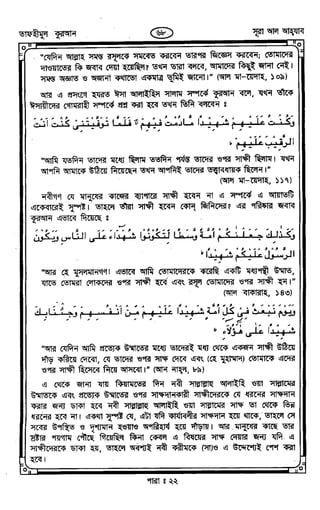 তাফহীমুল কুরআন
৬৮
সূরা আল আহযাব
"যেদিন আল্লাহ সমস্ত রসূলকে সমবেত করবেন তারপর জিজ্ঞেস করবেন; তোমাদের
দাওয়াতের কি জবাব দেয়া হয়েছিল? তখন তারা বলবে, আমাদের কিছুই জানা নেই।
সমস্ত অজ্ঞাত ও অজানা কথাতো একমাত্র তুমিই জানো।" (আল মা-য়েদাহ, ১০৯)
আর এ প্রসংগে হযরত ঈসা আলাইহিস সালাম সম্পর্কে কুরআন বলে, যখন তাঁকে
ঈসায়ীদের গোমরাহী সম্পর্কে প্রশ্ন করা হবে তখন তিনি বলবেন ঃ
وَكُنْتُ عَلَيْهِمْ شَهِيْدًا مَّادُمْتُ فِيْهِمْ ۚ فَلَمَّا تَوَفَّيْتَنِىْ كُنْتَ اَنْتَ
الرَّقِيْبَ عَلَيْهِمْ ؕ
"আমি যতদিন তাদের মধ্যে ছিলাম ততদিন পর্যন্ত তাদের ওপর সাক্ষী ছিলাম। যখন
আপনি আমাকে উঠিয়ে নিয়েছেন তখন আপনিই তাদের তত্ত্বাবধায়ক ছিলেন।"
(আল মা-য়েদাহ, ১১৭)
নবীগণ যে মানুষের কাজের ব্যাপারে সাক্ষী হবেন না এ সম্পর্কে এ আয়াতটি
একেবারেই সুস্পষ্ট। তাহলে তাঁরা সাক্ষী হবেন কোন্ জিনিসের? এর পরিষ্কার জবাব
কুরআন এভাবে দিয়েছে ঃ
وَكَذٰلِكَ جَعَلْنٰكُمْ اُمَّةً وَّسَطًا لِّتَكُوْنُوْا شُهَدَاءَ عَلَى النَّاسِ وَيَكُوْنَ
الرَّسُوْلُ عَلَيْكُمْ شَهِيْدًا ؕ
"আর হে মুসলমানগণ! এভাবে আমি তোমাদেরকে করেছি একটি মধ্যপন্থী উম্মাত,
যাতে তোমরা লোকদের ওপর সাক্ষী হবে এবং রসূল তোমাদের ওপর সাক্ষী হন।"
(আল বাকারাহ, ১৪৩)
وَيَوْمَ نَبْعَثُ فِىْ كُلِّ اُمَّةٍ شَهِيْدًا عَلَيْهِمْ مِّنْ اَنْفُسِهِمْ وَجِئْنَابِكَ
شَهِيْدًا عَلٰى هٰؤُلَاءِ ؕ
"আর যেদিন আমি প্রত্যেক উম্মাতের মধ্যে তাদেরই মধ্য থেকে একজন সাক্ষী উঠিয়ে
দাঁড় করিয়ে দেবো, যে তাদের ওপর সাক্ষ্য দেবে এবং (হে মুহাম্মাদ) তোমাকে এদের
ওপর সাক্ষী হিসেবে নিয়ে আসবো।" (আন নাহল, ৮৯)
এ থেকে জানা যায় কিয়ামতের দিন নবী সাল্লাল্লাহু আলাইহি ওয়া সাল্লামের
উম্মাতকে এবং প্রত্যেক উম্মাতের ওপর সাক্ষ্যদানকারী সাক্ষীদেরকে যে ধরনের সাক্ষ্যদান
করার জন্য ডাকা হবে নবী সাল্লাল্লাহু আলাইহি ওয়া সাল্লামের সাক্ষ্য তা থেকে ভিন্ন
ধরনের হবে না। একথা সুস্পষ্ট যে, এটা যদি কার্যাবলীর সাক্ষ্যদান হয়ে থাকে, তাহলে সে
সবের উপস্থিত ও দৃশ্যমান হওয়াও অপরিহার্য হয়ে দাঁড়ায়। আর মানুষের কাছে তার
স্রষ্টার পয়গাম পৌঁছে গিয়েছিল কিনা কেবল এ বিষয়ের সাক্ষ্য দেয়ার জন্য যদি এ
সাক্ষীদেরকে ডাকা হয়, তাহলে অবশ্যই নবী করীমকে (সাঃ)ও এ উদ্দেশ্যেই পেশ করা
হবে।
পারা ঃ ২২